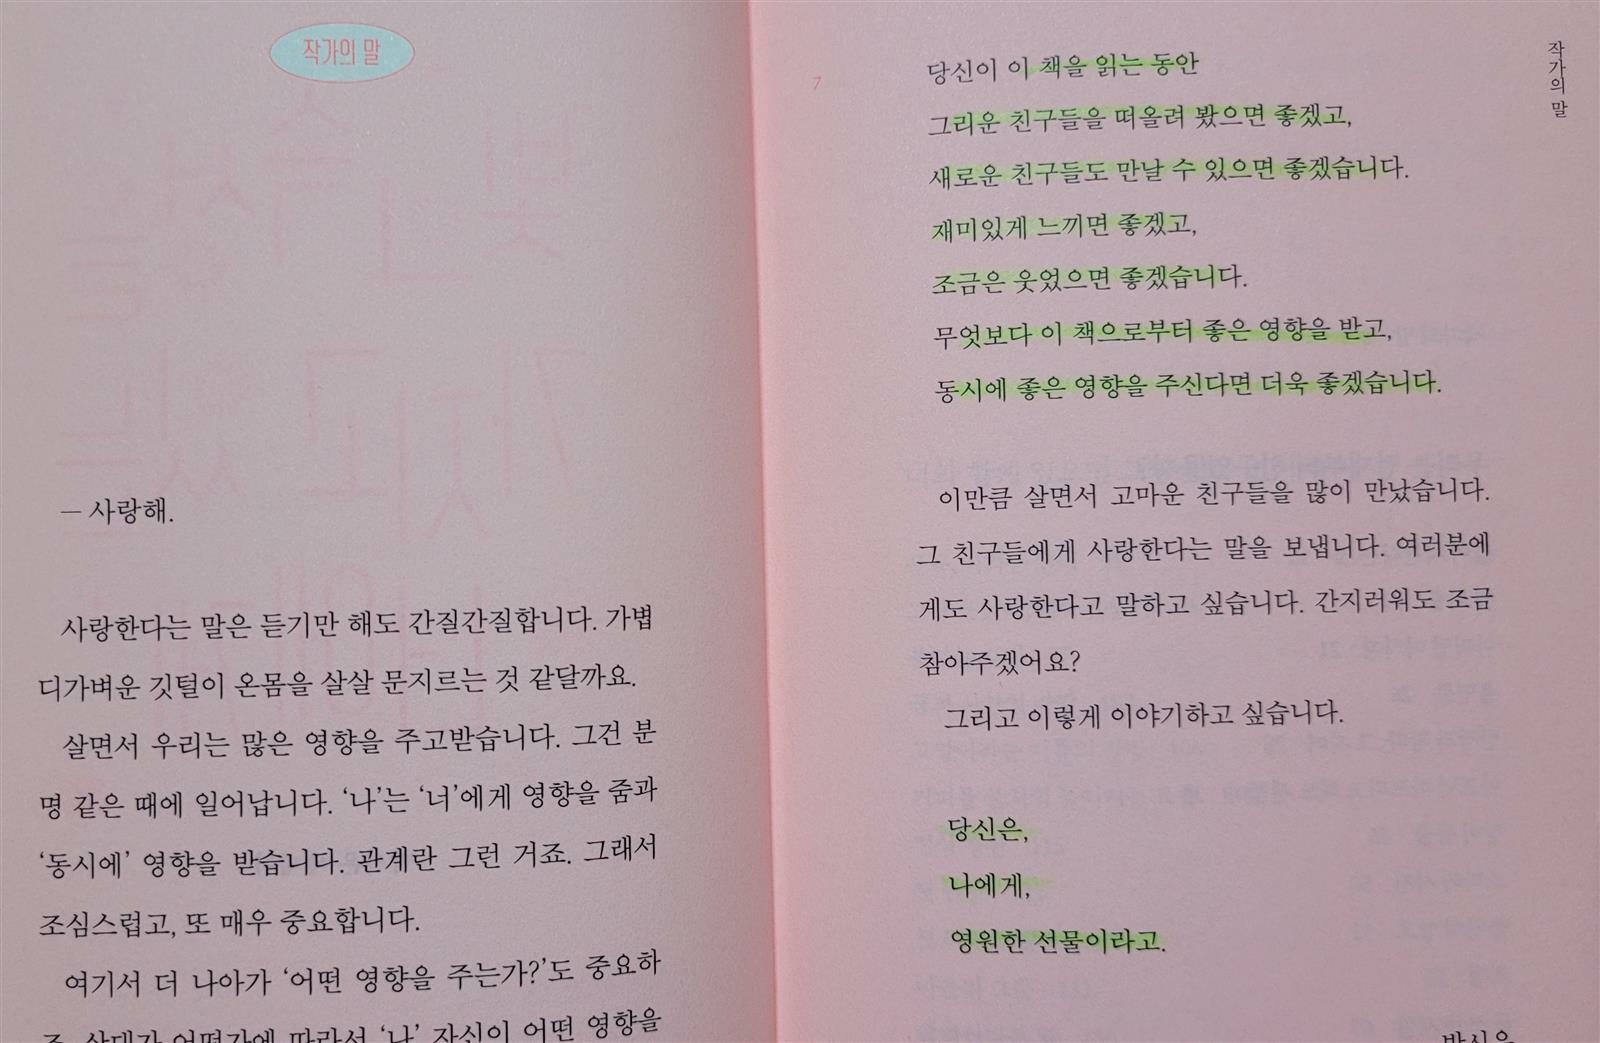 작가의 말
— 사랑해.
사랑한다는 말은 듣기만 해도 간질간질합니다. 가볍
디가벼운 깃털이 온몸을 살살 문지르는 것 같달까요.
살면서 우리는 많은 영향을 주고받습니다. 그건 분
명 같은 때에 일어납니다. ‘나’는 ‘너’에게 영향을 줌과
‘동시에’ 영향을 받습니다. 관계란 그런 거죠. 그래서
조심스럽고, 또 매우 중요합니다.
여기서 더 나아가 ‘어떤 영향을 주는가?’도 중요하
죠. 상대가 어떤가에 따라서 ‘나’ 자신이 어떤 영향을
7
작가의 말
당신이 이 책을 읽는 동안
그리운 친구들을 떠올려 봤으면 좋겠고,
새로운 친구들도 만날 수 있으면 좋겠습니다.
재미있게 느끼면 좋겠고,
조금은 웃었으면 좋겠습니다.
무엇보다 이 책으로부터 좋은 영향을 받고,
동시에 좋은 영향을 주신다면 더욱 좋겠습니다.
이만큼 살면서 고마운 친구들을 많이 만났습니다.
그 친구들에게 사랑한다는 말을 보냅니다. 여러분에
게도 사랑한다고 말하고 싶습니다. 간지러워도 조금
참아주겠어요?
그리고 이렇게 이야기하고 싶습니다.
당신은,
나에게,
영원한 선물이라고.